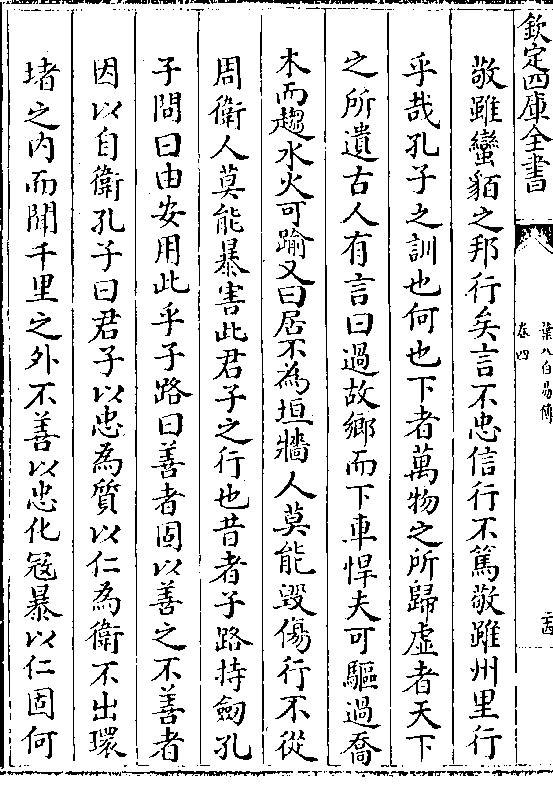 欽定四庫全書
葉八白易傳
卷四
十四
敬雖蠻貊之邦行矣言不忠信行不篤敬雖州里行
乎哉孔子之訓也何也下者萬物之所歸虛者天下
之所遺古人有言曰過故鄉而下車悍夫可驅過喬
木而趨水火可踰又曰居不為垣牆人莫能毀傷行不從
周衛人莫能暴害此君子之行也昔者子路持劒孔
子問曰由安用此乎子路曰善者固以善之不善者
因以自衛孔子曰君子以忠為質以仁為衛不出環
堵之内而聞千里之外不善以忠化冦暴以仁固何